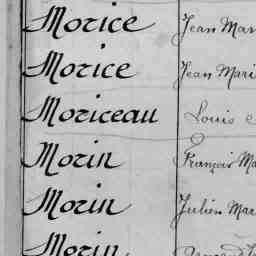 Morice Jean Mar
Morice Jean Mari
Moriceau Louis
Morin François Ma
Morin Julien Mar
Morin